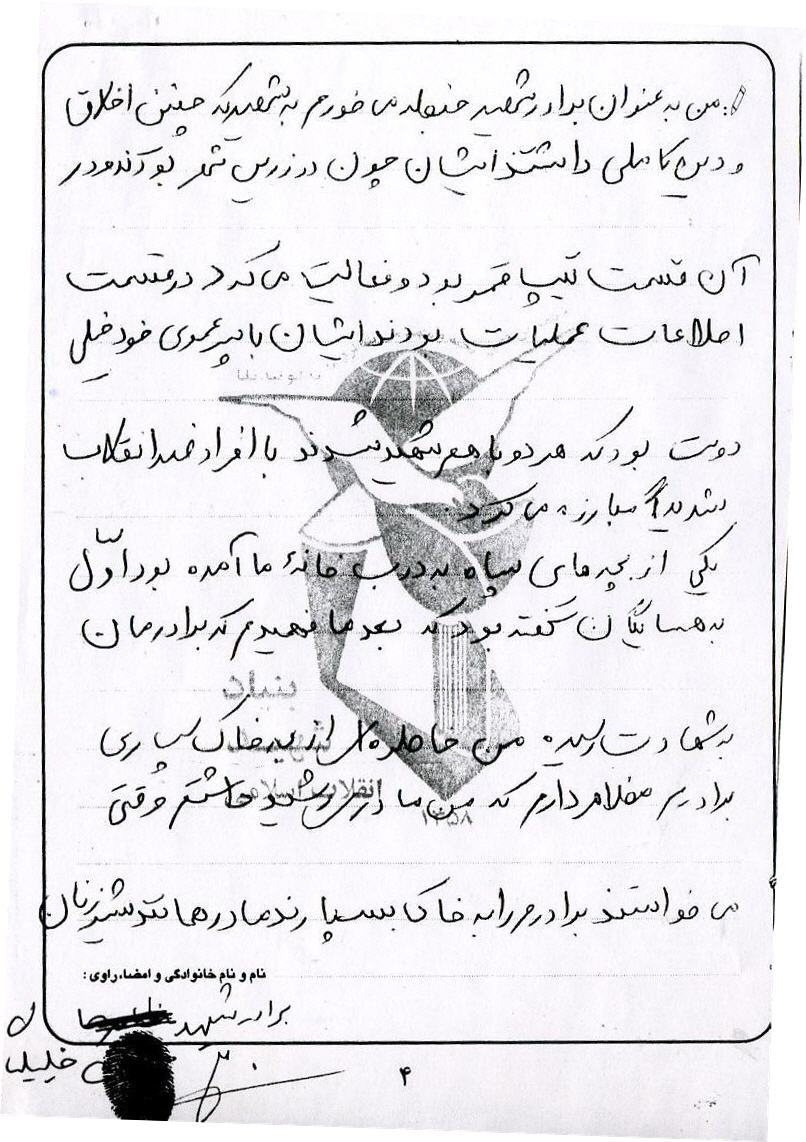 ج: من به عنوان برادر شهید غبطه می خورم به شهیدیکه چنین اخلاق
و دین کاملی داشتند ایشان چون در زرین شهر بودند و در
آن قسمت تیپ قمر بود و فعالیت می کرد در قسمت
اطلاعات عملیات بودند ایشان با پسرعموی خود خیلی
دوست بود که هر دو با هم شهید شدند با افراد ضد انقلاب
شدیداً مبارزه می کرد.
یکی از بچه های سپاه به درب خانهٔ ما آمده بود اوّل
به همسایگان گفته بود که بعد ما فهمیدیم که برادرمان
به شهادت رسیده من خاطره ای از خاک سپاری
برادرم دارم که من مادری داشتم وقتی
می خواستند برادرم را به خاک بسپارند مادرم مانند شیرزنان
بنیاد
شهید
انقلاب اسلامی
۱۳۵۸
نام و نام خانوادگی و امضاء راوی:
برادر شهید
۴